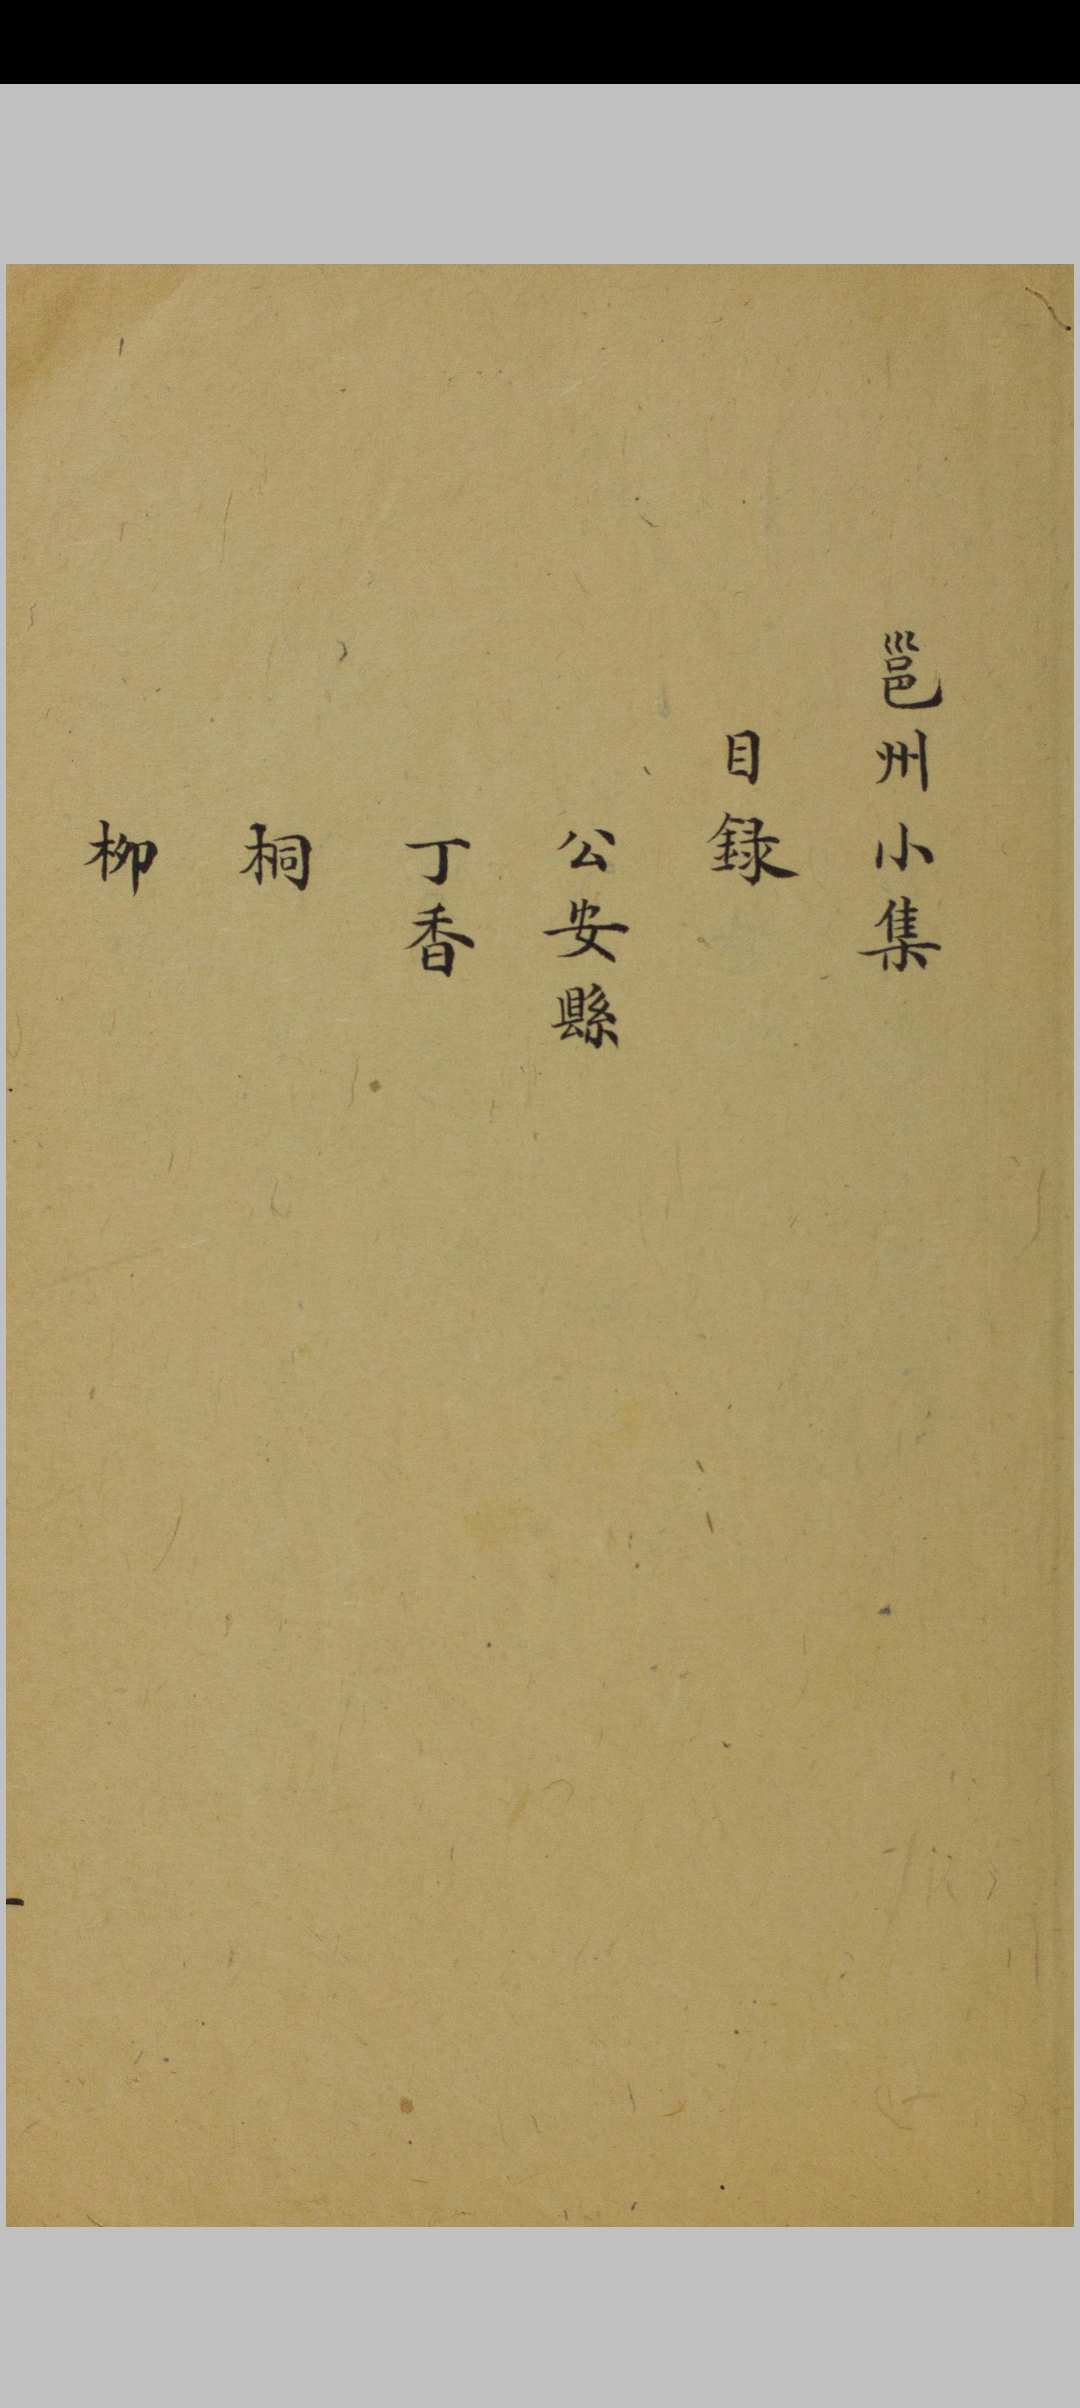 邕州小集
目録
公安縣
丁香
桐
柳